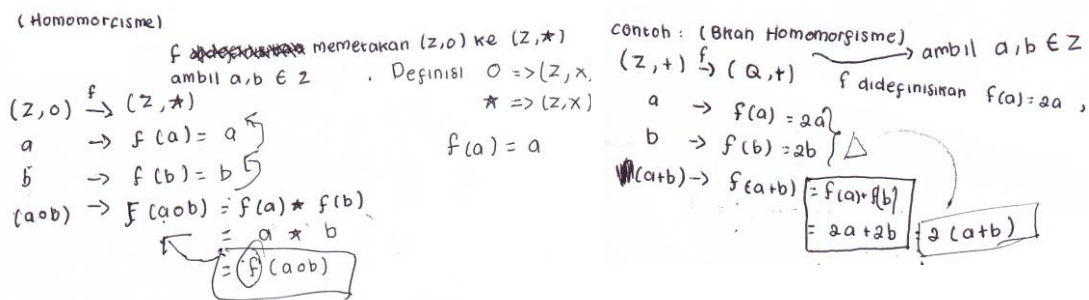 (Homomorfisme)
f memetakan (Z,o) ke (Z,★)
ambil a,b ∈ Z . Definisi O =>(Z,x)
(Z,o) f→ (Z,★) ★ =>(Z,x)
a → f(a) = a f(a) = a
b → f(b) = b
(aob) → F(aob) = f(a) ★ f(b)
= a ★ b
= f(aob)
Contoh : (Bkan Homomorfisme) → ambil a,b ∈ Z
(Z,+) f→ (Q,+) f didefinisikan f(a)=2a ,
a → f(a) = 2a
b → f(b) = 2b } △
(a+b) → f(a+b) = f(a)+f(b)
= 2a+2b = 2(a+b)